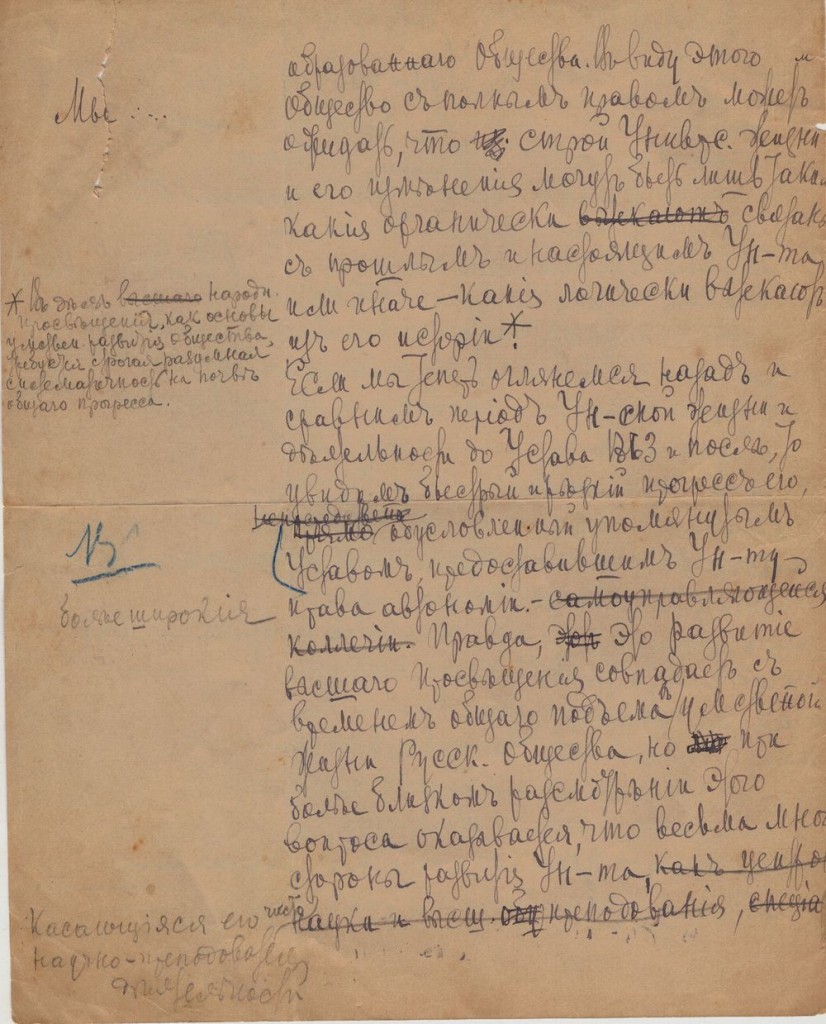 образованнаго Общества. Въ виду этого
Мы ....
Общество съ полнымъ правомъ можетъ
ожидать, что строй Универс. жизни
и его измѣненія могутъ быть лишь такія
какія органически вытекаютъ связаны
съ прошлымъ и настоящимъ Ун-та
или иначе – какія логически вытекаютъ
изъ его исторіи*!
* Въ дѣлѣ высшаго народн.
просвѣщенія, какъ основы
умствен. развитія общества,
требуется строгая разумная
систематичность на почвѣ
общаго прогресса.
Если мы теперь оглянемся назадъ и
сравнимъ періодъ Ун-ской жизни и
дѣятельности до Устава 1863 и послѣ, то
увидимъ быстрый прогрессъ его,
непосредственно
прямо обусловленный упомянутымъ
Уставомъ, предоставившимъ Ун-ту
болѣе широкія
права автономіи. – самоуправляющейся
коллегіи. Правда, это развитіе
высшаго просвѣщенія совпадаетъ съ
временемъ общаго подъема умственной
жизни Русск. общества, но при
болѣе близкомъ разсмотрѣніи этого
вопроса оказывается, что весьма мног
стороны развитія Ун-та, какъ центра
науки и высш. преподаванія, спеціа
касающіяся его чисто
научно-преподават.
дѣятельности